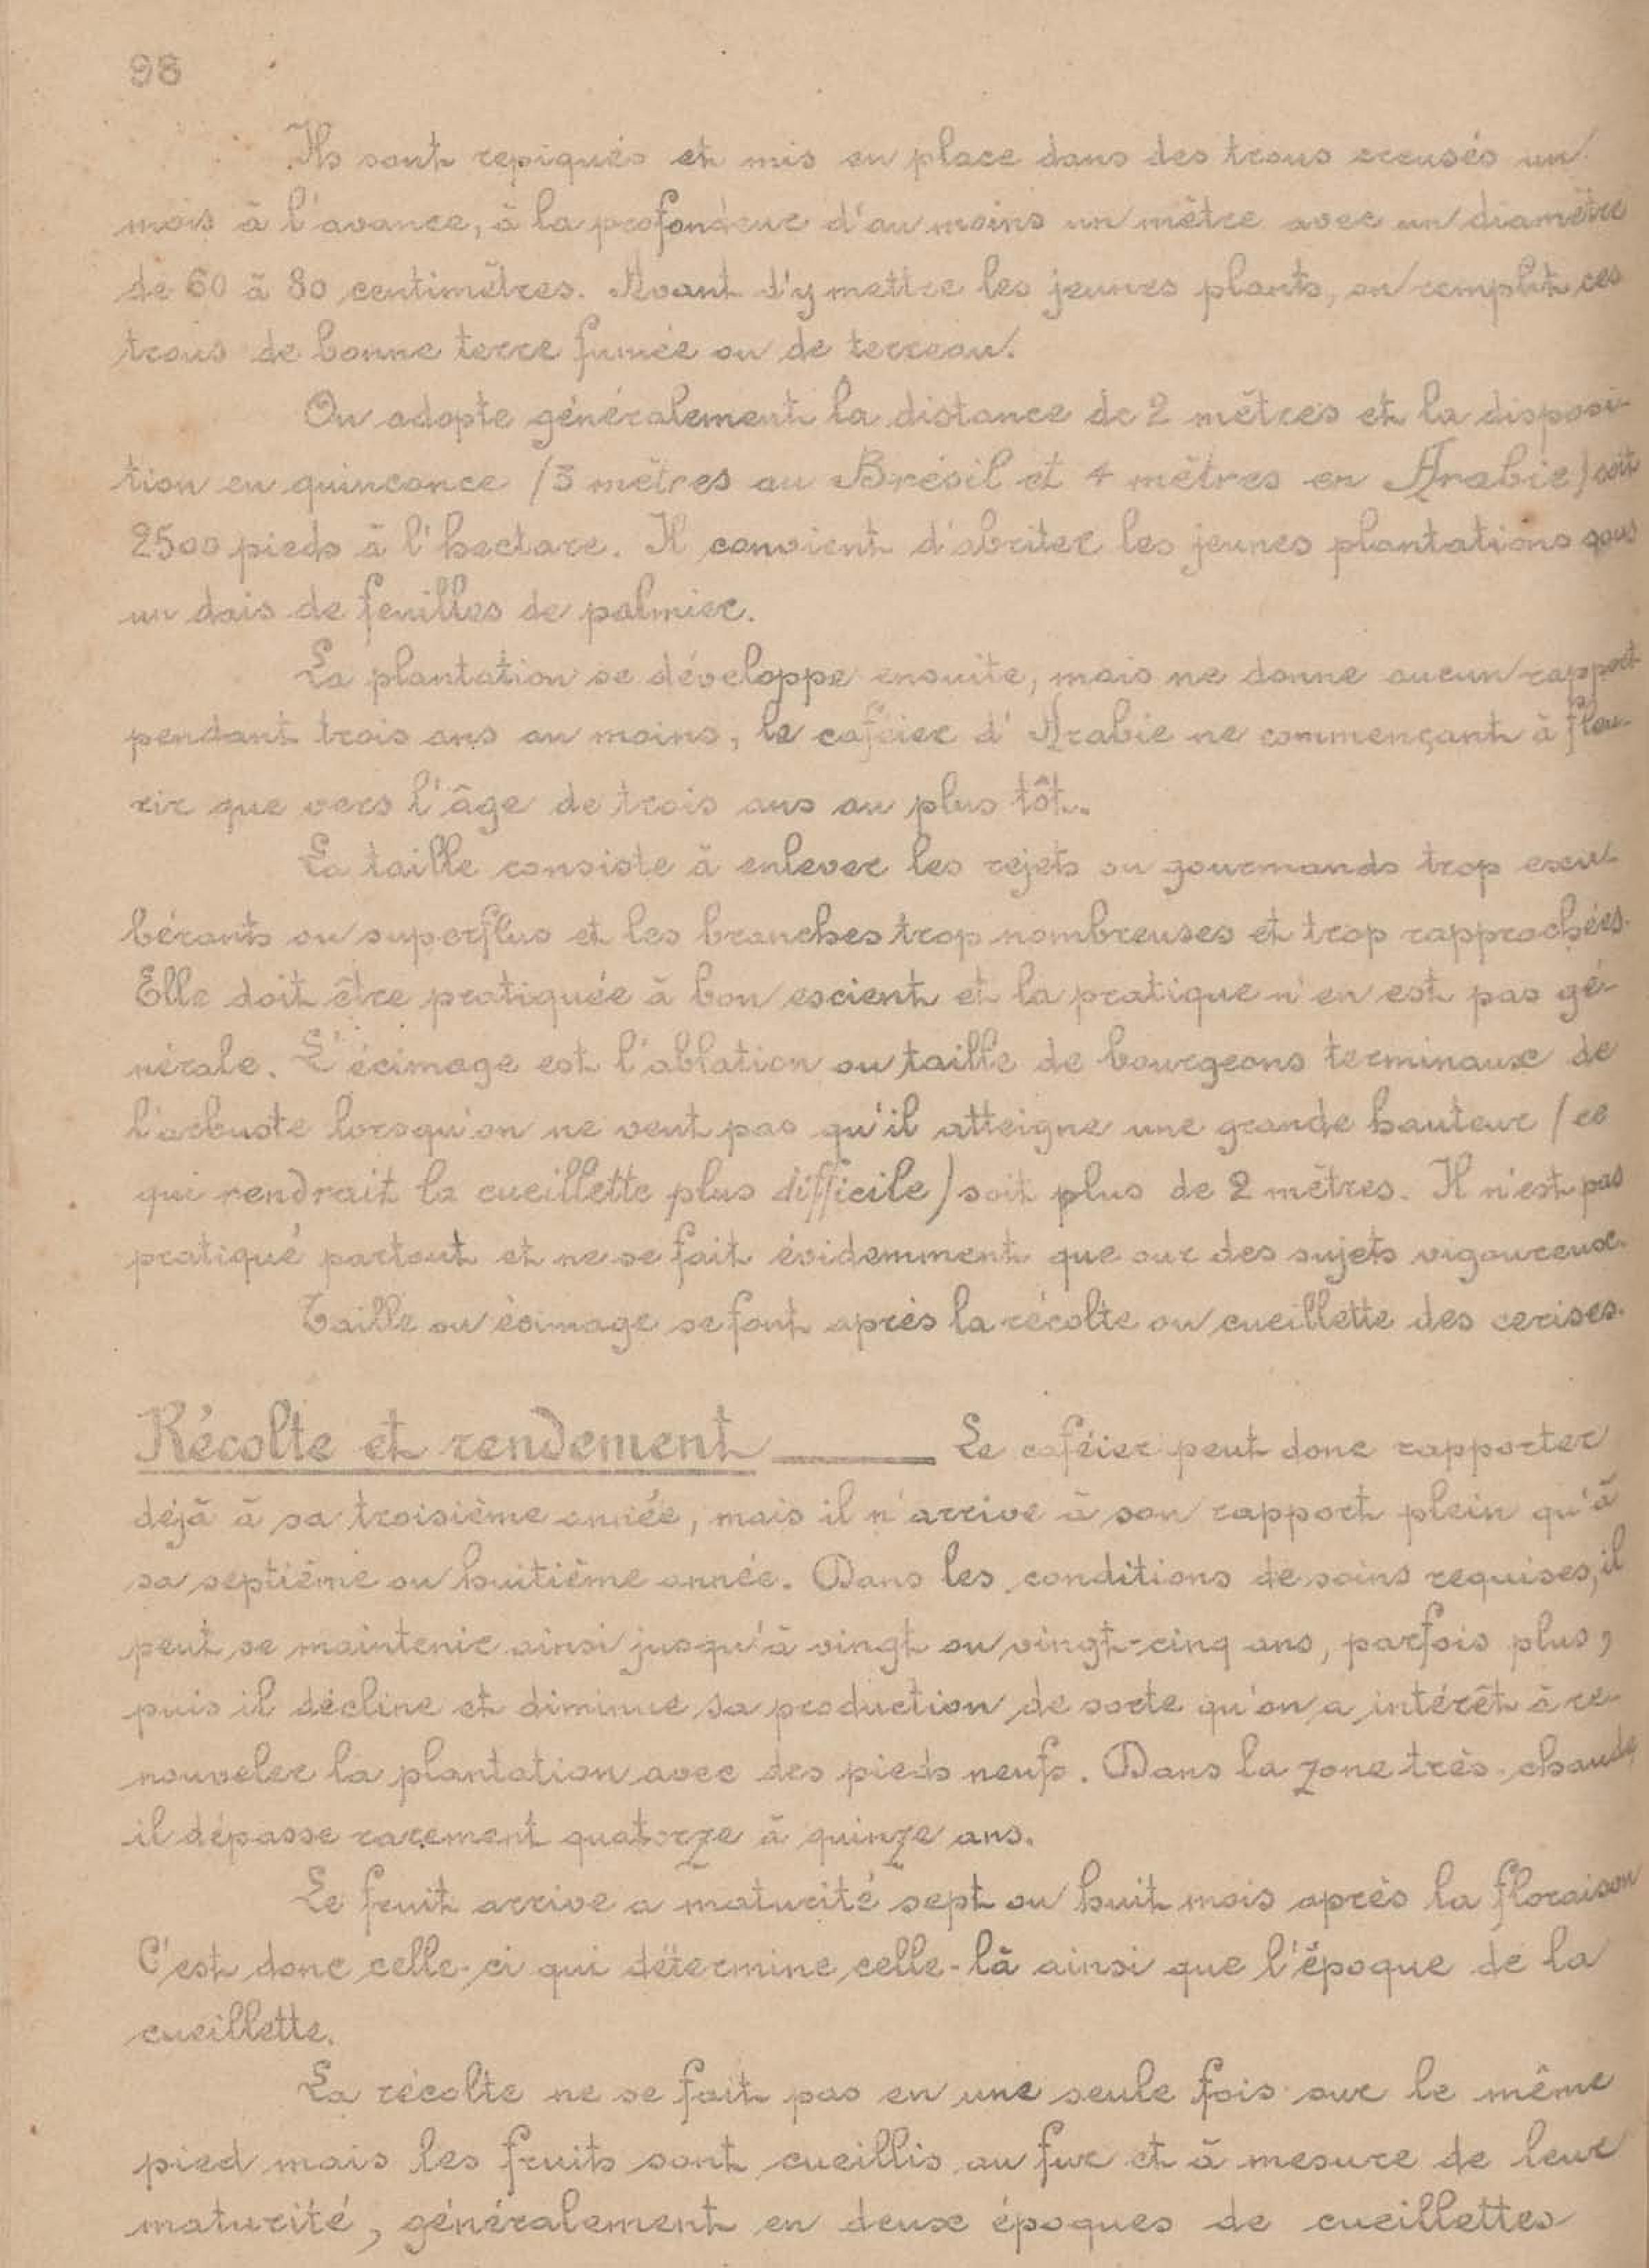 98
Ils sont repiqués et mis en place dans des trous creusés un
mois à l'avance, à la profondeur d'au moins un mètre avec un diamètre
de 60 à 80 centimètres. Avant d'y mettre les jeunes plants, on remplit ces
trous de bonne terre fumée ou de terreau.
On adopte généralement la distance de 2 mètres et la disposi-
tion en quinconce (3 mètres au Brésil et 4 mètres en Arabie) soit
2500 pieds à l'hectare. Il convient d'abriter les jeunes plantations sous
un dais de feuilles de palmier.
La plantation se développe ensuite, mais ne donne aucun rapport
pendant trois ans au moins, le caféier d'Arabie ne commençant à fleu-
rir que vers l'âge de trois ans au plus tôt.
La taille consiste à enlever les rejets ou gourmands trop exu-
bérants ou superflus et les branches trop nombreuses et trop rapprochées.
Elle doit être pratiquée à bon escient et la pratique n'en est pas gé-
nérale. L'écimage est l'ablation ou taille de bourgeons terminaux de
l'arbuste lorsqu'on ne veut pas qu'il atteigne une grande hauteur (ce
qui rendrait la cueillette plus difficile) soit plus de 2 mètres. Il n'est pas
pratiqué partout et ne se fait évidemment que sur des sujets vigoureux.
Taille ou écimage se font après la récolte ou cueillette des cerises.
Récolte et rendement ____ Le caféier peut donc rapporter
déjà à sa troisième année, mais il n'arrive à son rapport plein qu'à
sa septième ou huitième année. Dans les conditions de soins requises, il
peut se maintenir ainsi jusqu'à vingt ou vingt-cinq ans, parfois plus,
puis il décline et diminue sa production de sorte qu'on a intérêt à re-
nouveler la plantation avec des pieds neufs. Dans la zone très chaude
il dépasse rarement quatorze à quinze ans.
Le fruit arrive a maturité sept ou huit mois après la floraison
C'est donc celle-ci qui détermine celle-là ainsi que l'époque de la
cueillette.
La récolte ne se fait pas en une seule fois sur le même
pied mais les fruits sont cueillis au fur et à mesure de leur
maturité, généralement en deux époques de cueillettes